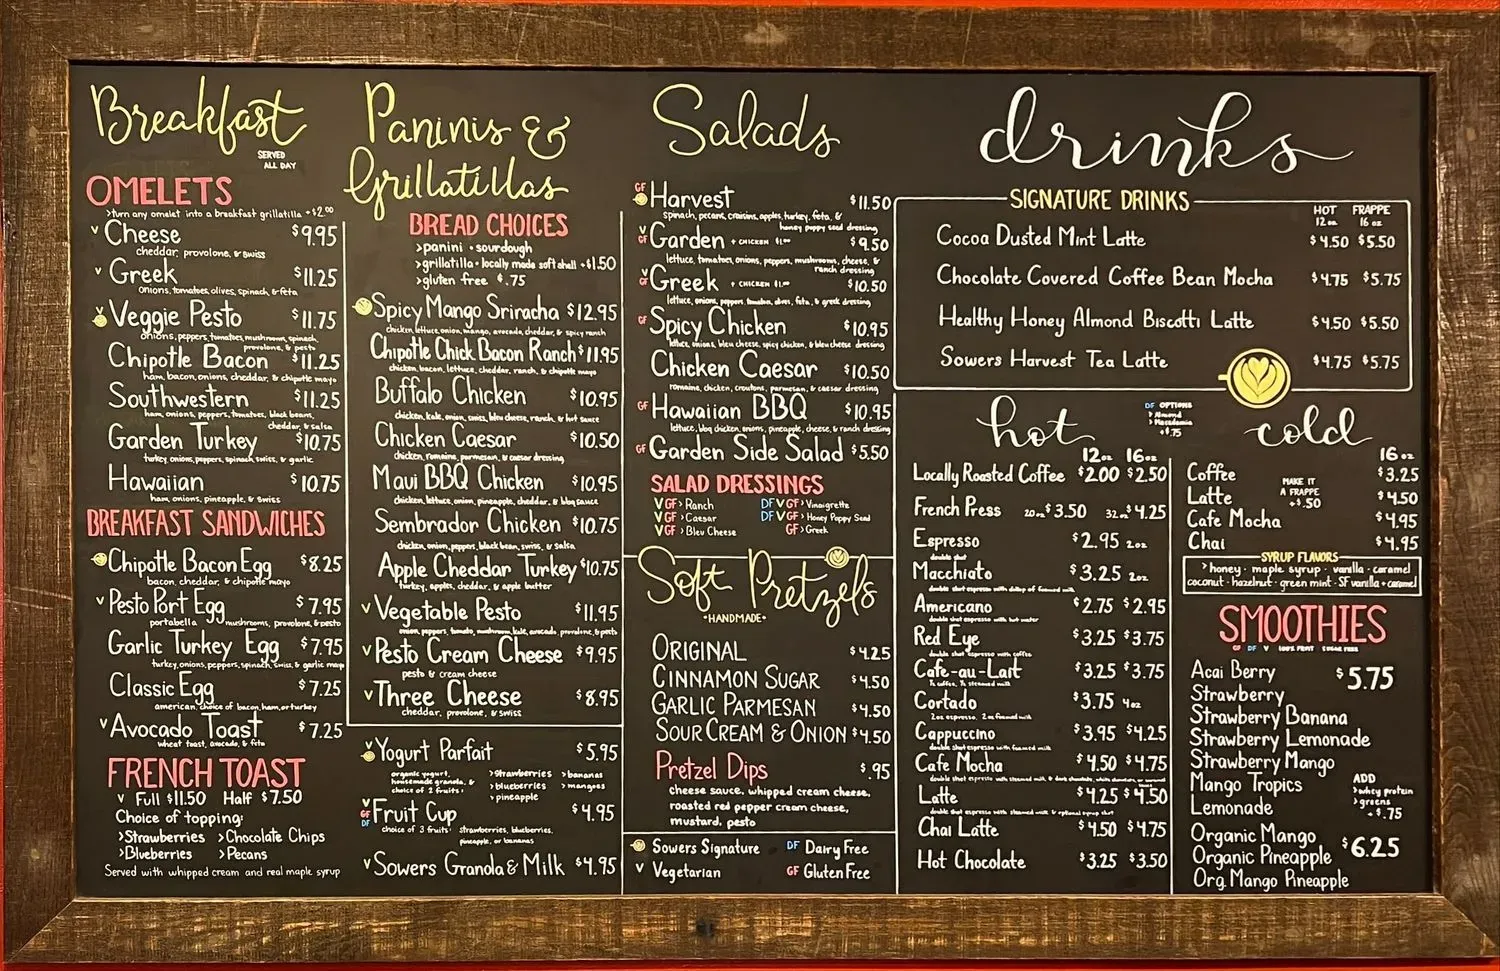 Breakfast
SERVED
ALL DAY
OMELETS
>turn any omelet into a breakfast grillatilla +$2.00
V Cheese $9.95
cheddar, provolone, & swiss
V Greek $11.25
onions, tomatoes, olives, spinach, & feta
V Veggie Pesto $11.75
onions, peppers, tomatoes, mushroom, spinach,
provolone, & pesto
Chipotle Bacon $11.25
ham, bacon, onions, cheddar, & chipotle mayo
Southwestern $11.25
ham, onions, peppers, tomatoes, black beans,
cheddar, & salsa
Garden Turkey $10.75
turkey, onions, peppers, spinach, swiss, & garlic
Hawaiian $10.75
ham, onions, pineapple, & swiss
BREAKFAST SANDWICHES
Chipotle Bacon Egg $8.25
bacon, cheddar, & chipotle mayo
V Pesto Port Egg $7.95
portabella mushrooms, provolone, & pesto
Garlic Turkey Egg $7.95
turkey, onions, peppers, spinach, swiss, & garlic mayo
Classic Egg $7.25
american, choice of bacon, ham, or turkey
V Avocado Toast $7.25
wheat toast, avocado, & feta
FRENCH TOAST
V Full $11.50 Half $7.50
Choice of topping:
>Strawberries >Chocolate Chips
>Blueberries >Pecans
Served with whipped cream and real maple syrup
Paninis &
Grillatillas
BREAD CHOICES
>panini • sourdough
>grillatilla • locally made soft shell +$1.50
>gluten free $.75
Spicy Mango Sriracha $12.95
chicken, lettuce, onion, mango, avocado, cheddar, & spicy ranch
Chipotle Chick Bacon Ranch $11.95
chicken, bacon, lettuce, cheddar, ranch, & chipotle mayo
Buffalo Chicken $10.95
chicken, kale, onion, swiss, bleu cheese, ranch, & hot sauce
Chicken Caesar $10.50
chicken, romaine, parmesan, & caesar dressing
Maui BBQ Chicken $10.95
chicken, lettuce, onion, pineapple, cheddar, & bbq sauce
Sembrador Chicken $10.75
chicken, onion, peppers, black bean, swiss, & salsa
Apple Cheddar Turkey $10.75
turkey, apples, cheddar, & apple butter
V Vegetable Pesto $11.95
onion, peppers, tomato, mushroom, kale, avocado, provolone, & pesto
V Pesto Cream Cheese $9.95
pesto & cream cheese
V Three Cheese $8.95
cheddar, provolone, & swiss
V Yogurt Parfait $5.95
organic yogurt,
housemade granola, &
choice of 2 fruits:
>strawberries >bananas
>blueberries >mangoes
>pineapple
V GF DF Fruit Cup $4.95
choice of 3 fruits: strawberries, blueberries,
pineapple, or bananas
V Sowers Granola & Milk $4.95
Salads
GF Harvest $11.50
spinach, pecans, craisins, apples, turkey, feta, &
honey poppy seed dressing
V GF Garden + CHICKEN $1.00 $9.50
lettuce, tomatoes, onions, peppers, mushrooms, cheese, &
ranch dressing
V GF Greek + CHICKEN $1.00 $10.50
lettuce, onions, peppers, tomatoes, olives, feta, & greek dressing
GF Spicy Chicken $10.95
lettuce, onions, bleu cheese, spicy chicken, & bleu cheese dressing
Chicken Caesar $10.50
romaine, chicken, croutons, parmesan, & caesar dressing
GF Hawaiian BBQ $10.95
lettuce, bbq chicken, onions, pineapple, cheese, & ranch dressing
GF Garden Side Salad $5.50
SALAD DRESSINGS
V GF > Ranch DF V GF > Vinaigrette
V GF > Caesar DF V GF > Honey Poppy Seed
V GF > Bleu Cheese GF > Greek
Soft Pretzels
•HANDMADE•
ORIGINAL $4.25
CINNAMON SUGAR $4.50
GARLIC PARMESAN $4.50
SOUR CREAM & ONION $4.50
Pretzel Dips $.95
cheese sauce, whipped cream cheese,
roasted red pepper cream cheese,
mustard, pesto
Sowers Signature DF Dairy Free
V Vegetarian GF Gluten Free
drinks
SIGNATURE DRINKS
HOT FRAPPE
12 oz 16 oz
Cocoa Dusted Mint Latte $4.50 $5.50
Chocolate Covered Coffee Bean Mocha $4.75 $5.75
Healthy Honey Almond Biscotti Latte $4.50 $5.50
Sowers Harvest Tea Latte $4.75 $5.75
hot
DF OPTIONS
> Almond
> Macadamia
+$.75
12 oz 16 oz
Locally Roasted Coffee $2.00 $2.50
French Press 20 oz $3.50 32 oz $4.25
Espresso $2.95 2 oz
double shot
Macchiato $3.25 2 oz
double shot espresso with dollop of foamed milk
Americano $2.75 $2.95
double shot espresso with hot water
Red Eye $3.25 $3.75
double shot espresso with coffee
Cafe-au-Lait $3.25 $3.75
½ coffee, ½ steamed milk
Cortado $3.75 4 oz
2 oz espresso, 2 oz foamed milk
Cappuccino $3.95 $4.25
double shot espresso with foamed milk
Cafe Mocha $4.50 $4.75
Latte $4.25 $4.50
double shot espresso with steamed milk & optional syrup shot
Chai Latte $4.50 $4.75
Hot Chocolate $3.25 $3.50
cold
16 oz
Coffee $3.25
Latte $4.50
MAKE IT
A FRAPPE
+$.50
Cafe Mocha $4.95
Chai $4.95
SYRUP FLAVORS
>honey • maple syrup • vanilla • caramel
coconut • hazelnut • green mint • SF vanilla + caramel
SMOOTHIES
GF DF V 100% FRUIT SUGAR FREE
Acai Berry $5.75
Strawberry
Strawberry Banana
Strawberry Lemonade
Strawberry Mango
Mango Tropics
Lemonade
ADD
>whey protein
>greens
+$.75
Organic Mango
Organic Pineapple $6.25
Org. Mango Pineapple